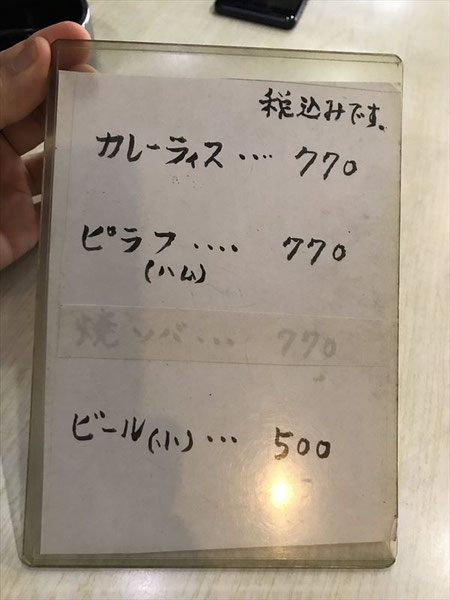 税込みです。
カレーライス‥‥ 770
ピラフ‥‥ 770
(ハム)
焼ソバ… 770
ビール(小)… 500